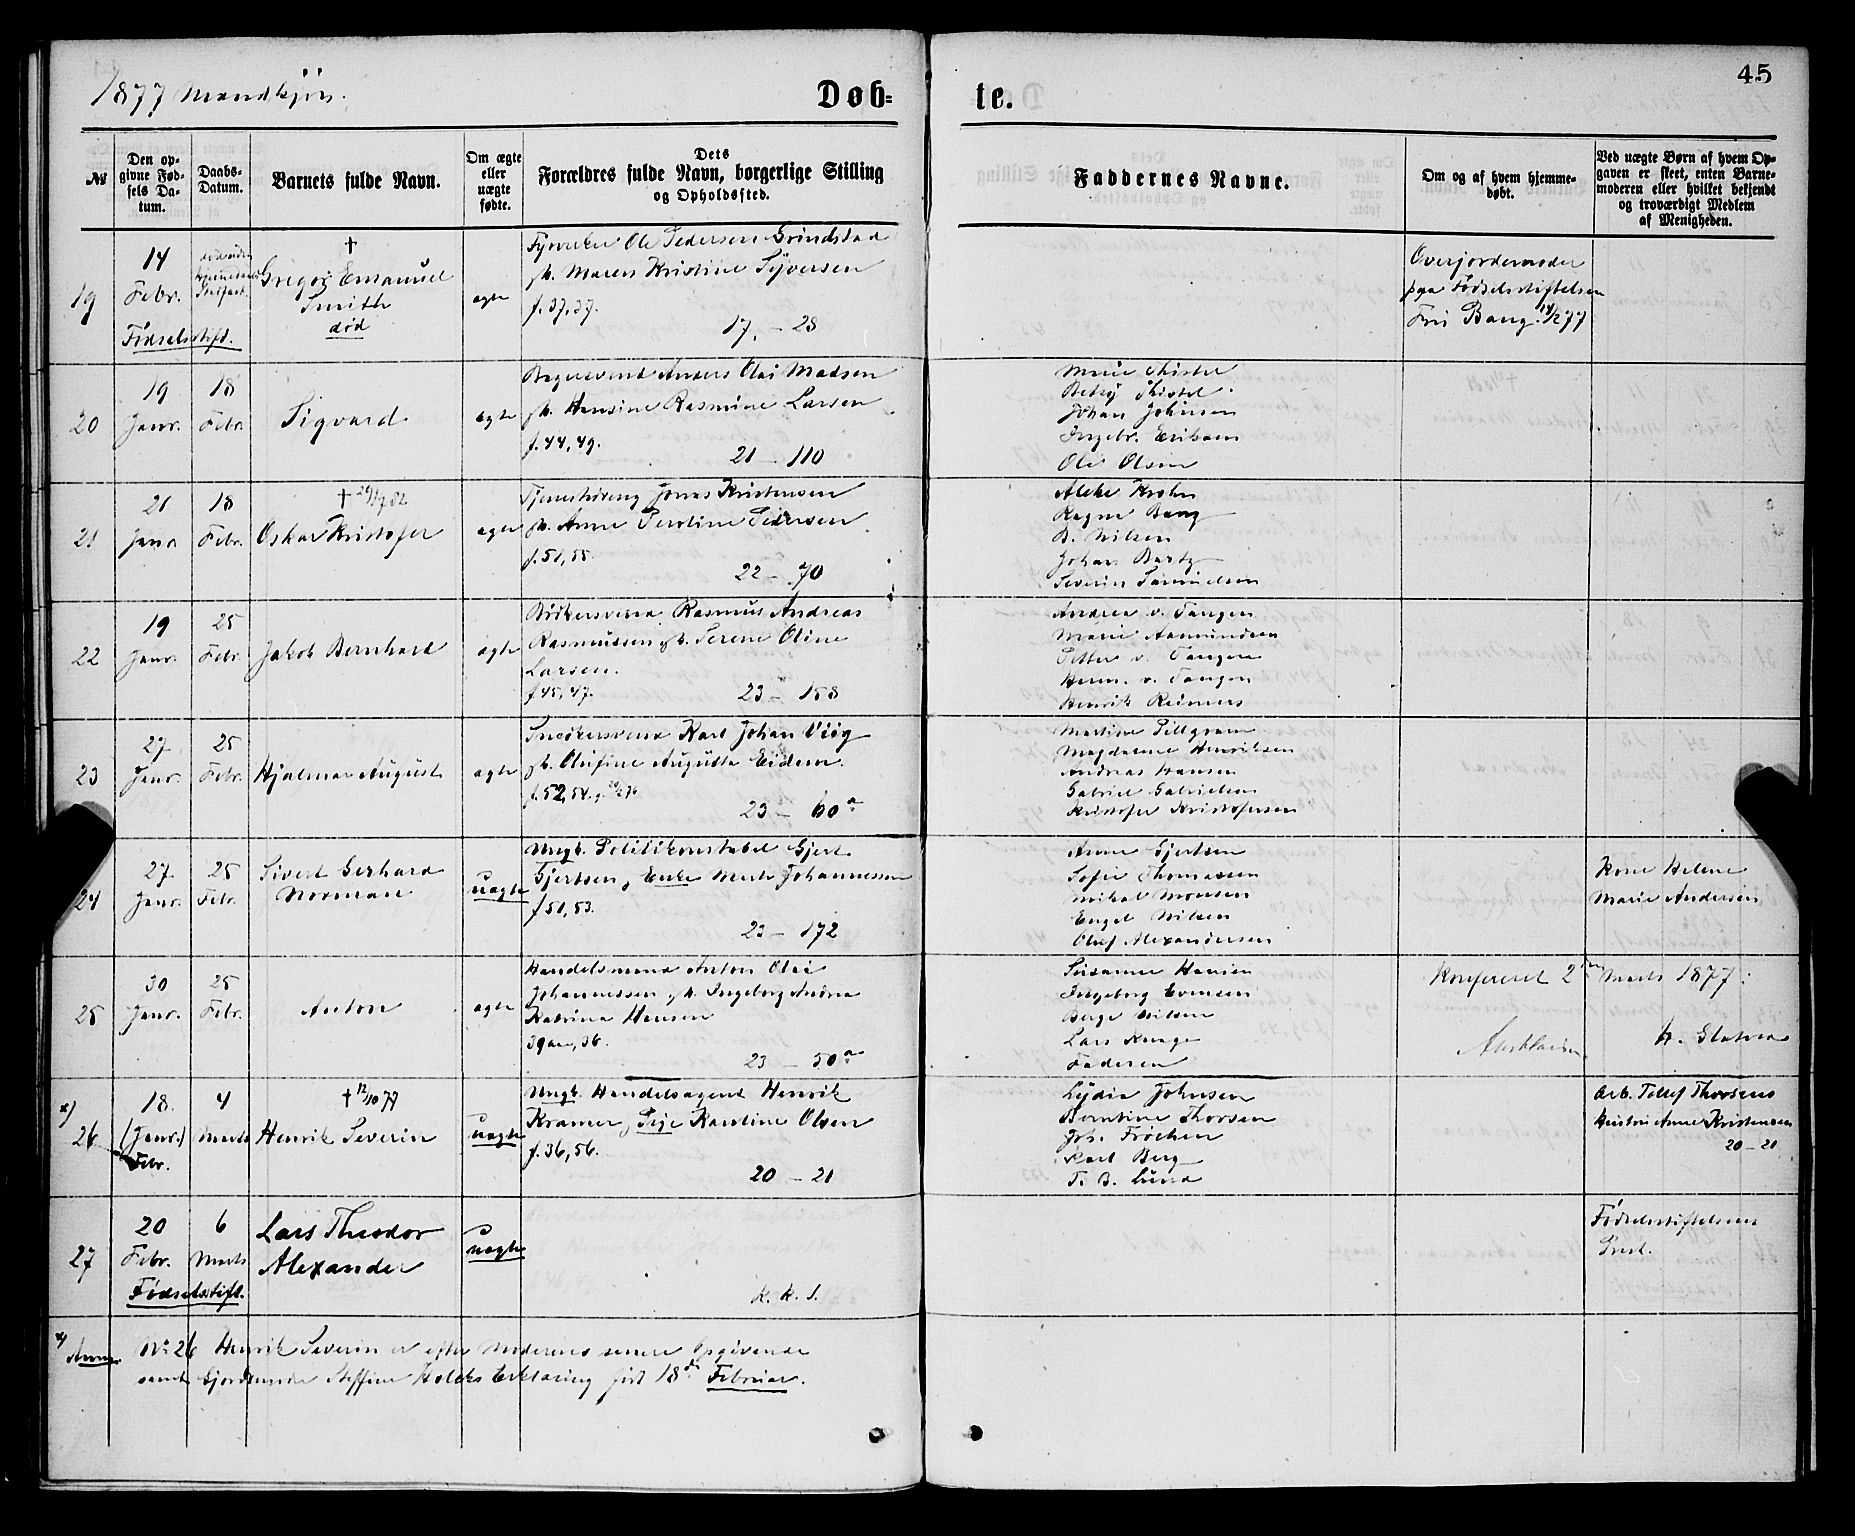 1877 Mandkjøn.
Døb=
te.
45
№
Den op-
givne Fød-
sels Da-
tum.
Daabs-
Datum.
Barnets fulde Navn.
Om ægte
eller
uægte
fødte.
Dets
Forældres fulde Navn, borgerlige Stilling
og Opholdssted.
Faddernes Navne.
Om og af hvem hjemme-
døbt.
Ved uægte Børn af hvem Op-
gaven er skeet, enten Barne-
moderen eller hvilket bekjendt
og troværdigt Medlem
af Menigheden.
19
14
Febr.
Fødselsstift.
†
Gregor Emanuel
Smith
død
ægte
Ole Pedersen Grindstad
Maren Kristine Syversen
f. 37, 37.
17. - 28
Overjordemoder
paa Fødselsstiftelsen
Bang 14/2 77
20
19
Janr.
18
Febr.
Sigvard
ægte
Bagersvend Anders Olai Madsen
Hansine Rasmine Larsen
f. 44, 49.
21 - 110
Marie Thistel
Betsy Thistel
Johan Johnsen
Ingebr. Eriksen
Ole Olsen
21
21
Janr
18
Febr.
† 29/7 82
Oskar Kristofer
ægte
Tjenestedreng Jonas Kristensen
Anne Seroline Pedersen
f. 51, 55.
22 - 70
Aleke Krohn
Ragna Bang
B. Nilsen
Johan Bartz
Severin Samuelsen
22
19
Janr.
25
Febr.
Jakob Bernhard
ægte
Bødkersvend Rasmus Andreas
Rasmussen Serene Oline
Larsen.
f 45, 47.
23 - 158
Andrea v. Tangen
Marie Aamundsen
Petter v. Tangen
Herm. v. Tangen
Henrik Reimers
23
27
Janr.
25
Febr.
Hjalmar August
ægte
Snedkersvend Karl Johan Viig
Olufine Augusta Eidem.
f. 52, 54.
23 - 60 a
Martine Pillgram
Magdalene Henriksen
Andreas Hansen
Gabriel Gabrielsen
Kristofer Kristofersen
24
27
Janr.
25
Febr.
Sivert Gerhard
Norman
uægte
Ungk. Politikonstabel Gjert
Gjertsen, Enke Marte Johannessen
f 51, 53.
23 - 172
Anne Gjertsen
Sofie Thomassen
Mikal Monsen
Engel Nilsen
Oluf Alexandersen
Kone Helene
Marie Andersen
25
30
Janr.
25
Febr.
Anton
ægte
Handelsmand Anton Olai
Johannessen Ingeborg Andrea
Katrina Hansen
23 - 50 a
Susanne Hansen
Ingeborg Evensen
Berge Nilsen
Lars
Faderen
Konfereret 2den Marts 1877:
x)
26
18.
(Janr.)
Febr.
4
Marts
† 12/10 77
Henrik Severin
uægte
Ungk. Handelsagent Henrik
Kramer, Pige Karoline Olsen
f. 36, 56.
20 - 21
Lydia Johnsen
Berntine Thorsen
Joh. Frøchen
Karl Berg
T. B. Lund
Arb. Tollef Thorsens
Hustru Anne Kristensen
20 - 21
27
20
Febr.
Fødselsstift.
6
Marts
Lars Theodor
Alexander
uægte
K. K. 1.
Fødselsstiftelsens
Præst.
x)
Anm.
No 26 Henrik Severin er efter Moderens senere Opgivende
samt Gjordemoder Steffine Holcks Erklæring født 18de Februar.